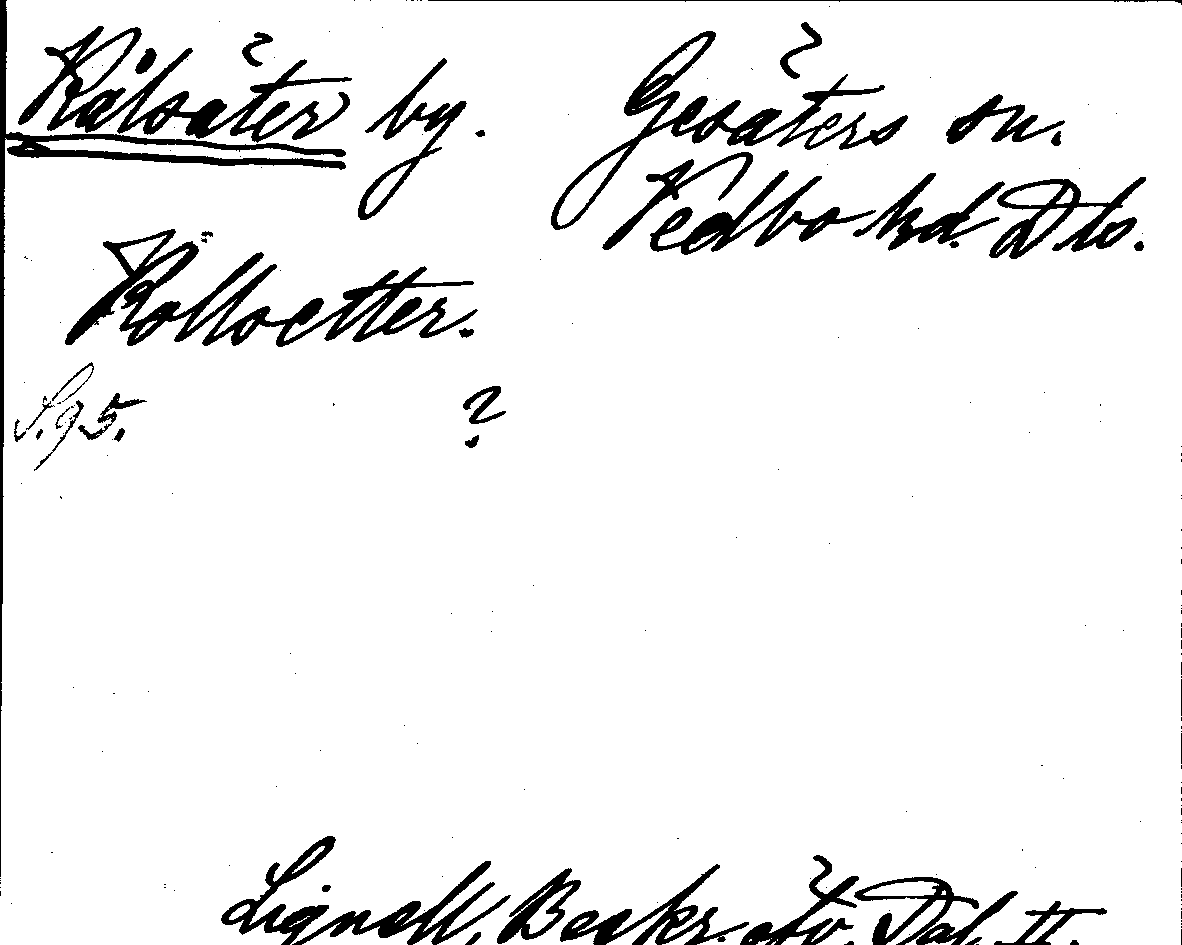 Kålsäter by. Gesäters sn.
Vedbo hd. Dls.
Kollsetter.
S. 95. ?
Lignell, Beskr. öfv. Dal, II.